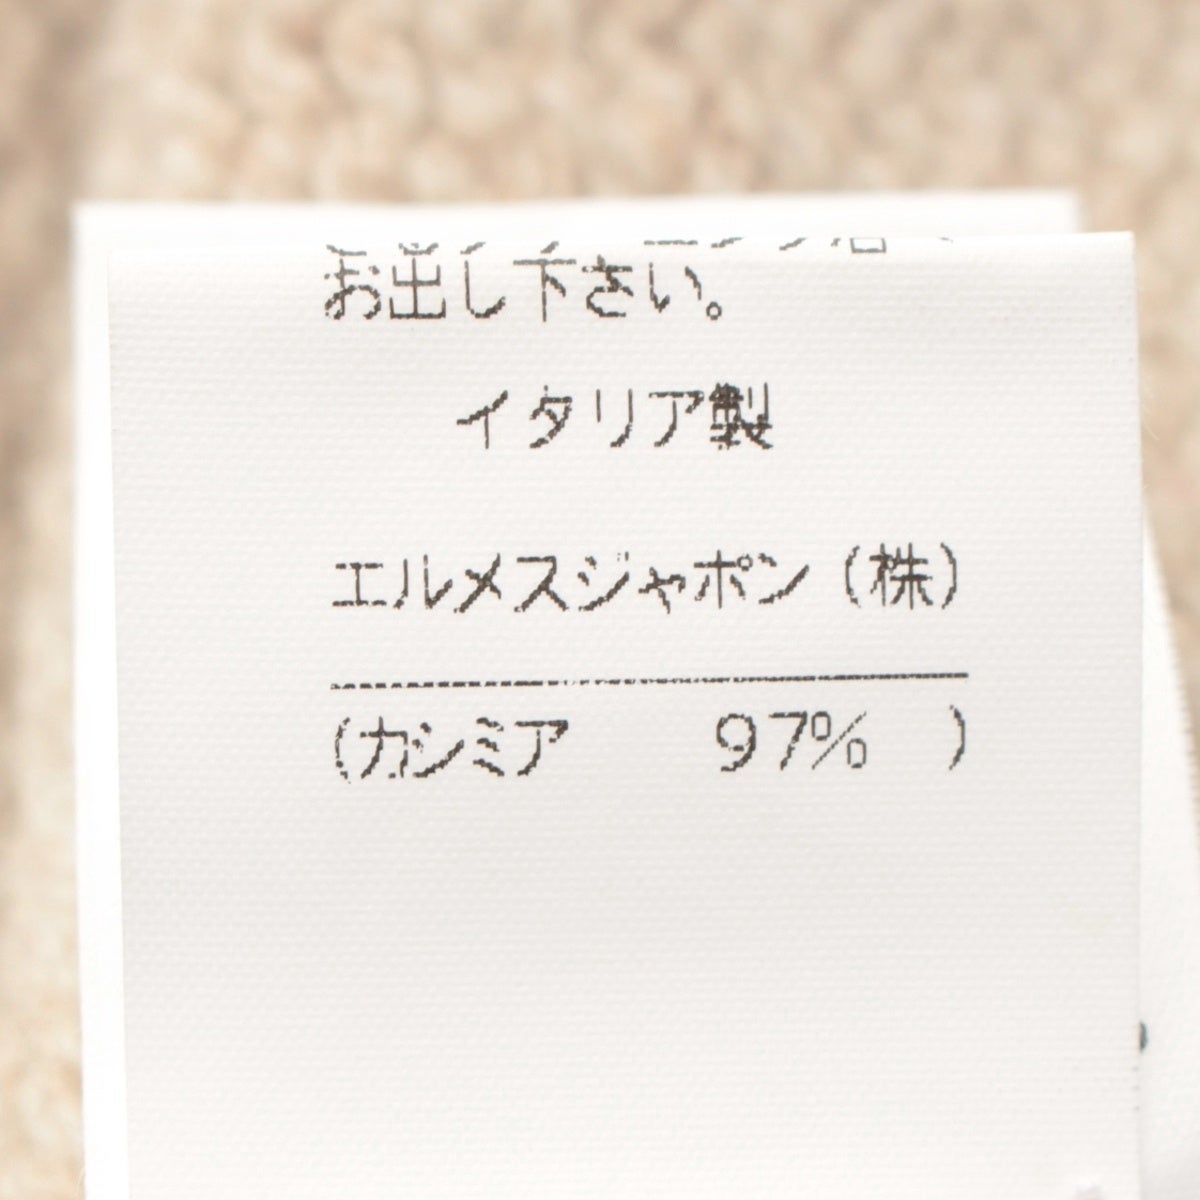 お出し下さい。
イタリア製
エルメスジャポン（株）
（カシミア　　97%　）